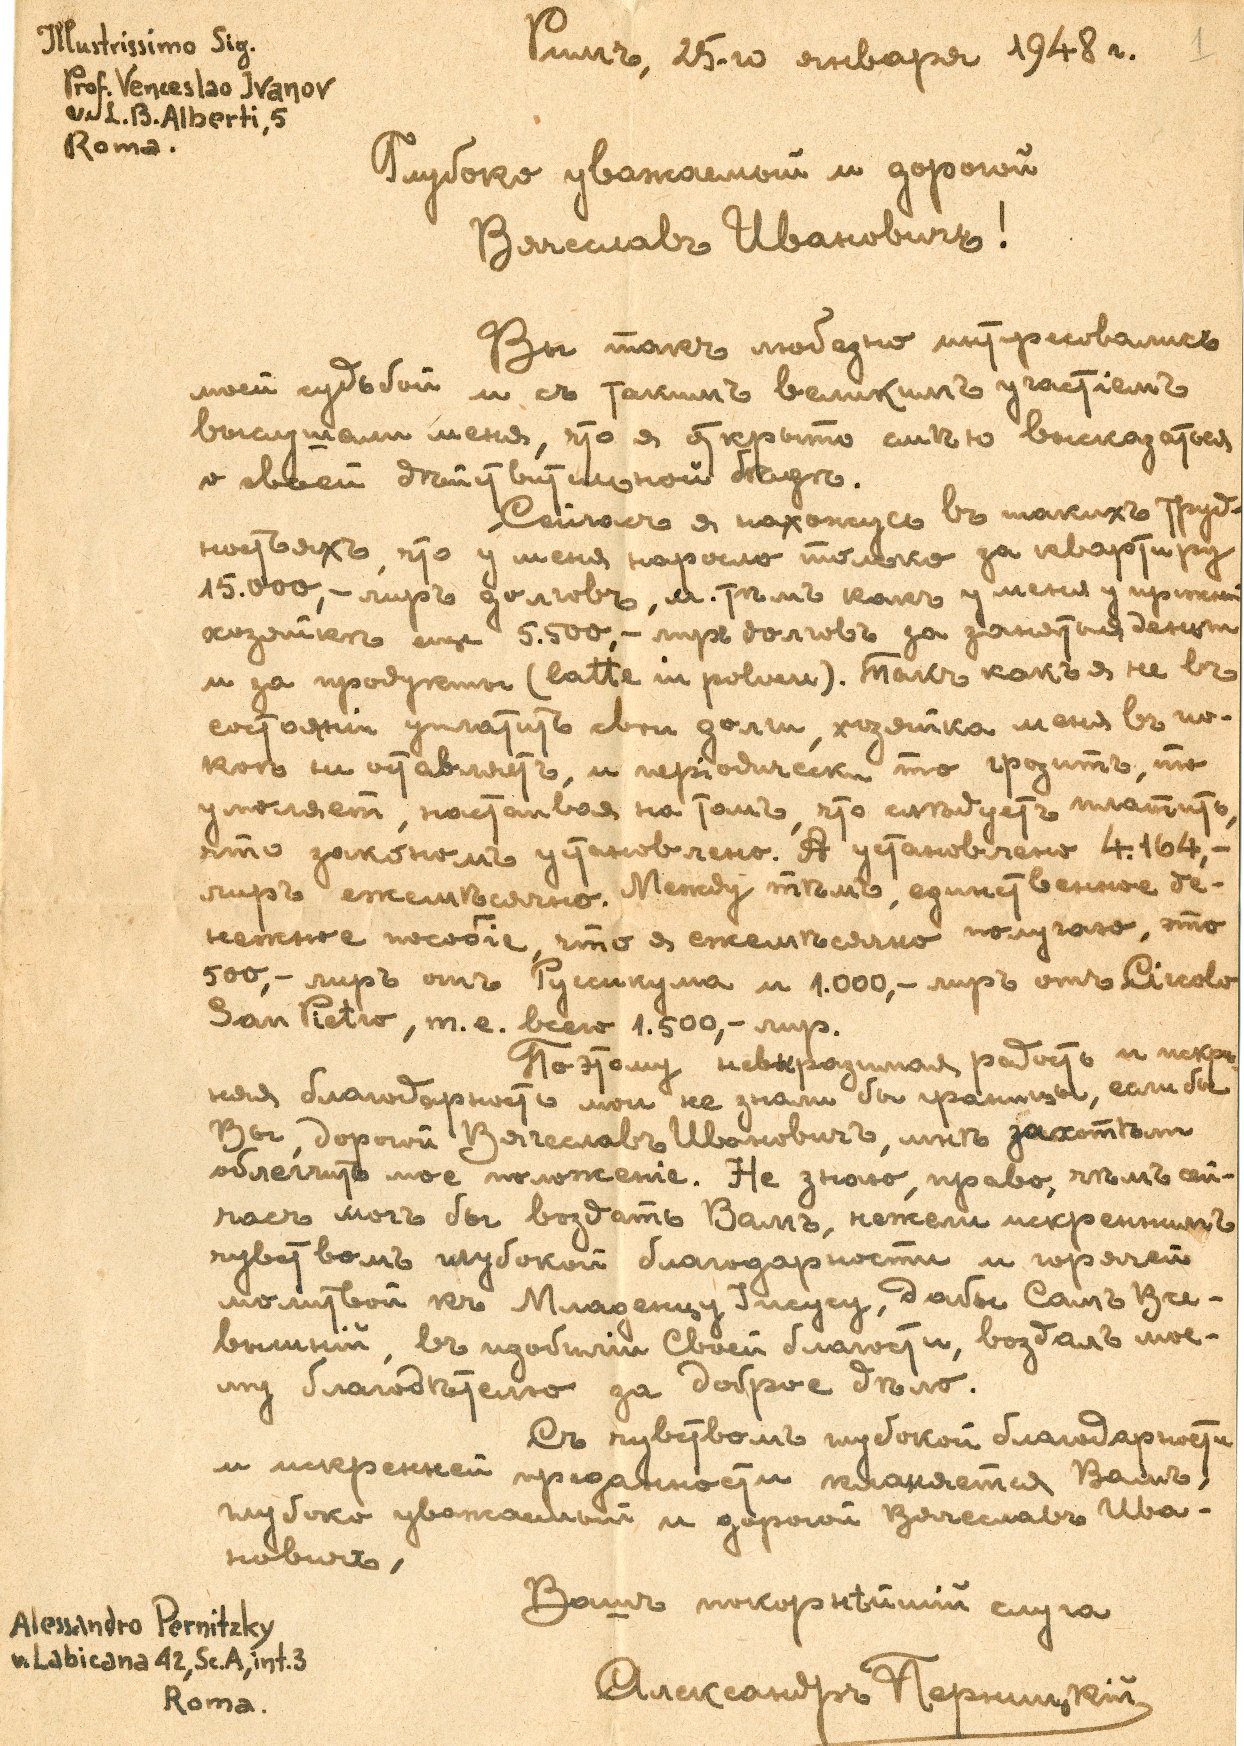 Illustrissimo Sig.
Prof. Venceslao Ivanov
v. L. B. Alberti, 5
Roma.
Римъ, 25-го января 1948 г.
1
Глубоко уважаемый и дорогой
Вячеславъ Ивановичъ!
Вы такъ любезно интересовались
моей судьбой и съ такимъ великимъ участіемъ
выслушали меня, что я открыто смѣю высказаться
о своей дѣйствительной бѣдѣ.
Сейчасъ я нахожусь въ такихъ труд-
ностьяхъ, что у меня наросло только за квартиру
15.000,- лиръ долговъ, м. тѣмъ какъ у меня у прежней
хозяйкѣ еще 5.500,- лиръ долговъ за занятыя деньги
и за продукты (latte in polvere). Такъ какъ я не въ
состояніи уплатить свои долги, хозяйка меня въ по-
коѣ не оставляетъ, и періодически то грозитъ, то
умоляетъ, настаивая на томъ, что слѣдуетъ платить,
что закономъ установлено. А установлено 4.164,-
лиръ ежемѣсячно. Между тѣмъ, единственное де-
нежное пособіе, что я ежемѣсячно получаю, это
500,- лиръ отъ Руссикума и 1.000,- лиръ отъ Circolo
San Pietro, т. е. всего 1.500,- лир.
Поэтому невыразимая радость и искрен-
няя благодарность мои не знали бы границы, если бы
Вы, дорогой Вячеславъ Ивановичъ, мнѣ захотѣли
облегчить мое положеніе. Не знаю, право, чѣмъ сей-
часъ могъ бы воздать Вамъ, нежели искреннимъ
чувствомъ глубокой благодарности и горячей
молитвой къ Младенцу Іисусу, дабы Самъ Все-
вышній, въ изобиліи Своей благости, воздалъ мое-
му благодѣтелю за доброе дѣло.
Съ чувствомъ глубокой благодарности
и искренней преданности кланяется Вамъ,
глубоко уважаемый и дорогой Вячеславъ Ива-
новичъ,
Вашъ покорнѣйшій слуга
Александръ Перницкій
Alessandro Pernitzky
v. Labicana 42, Sc. A, int. 3
Roma.